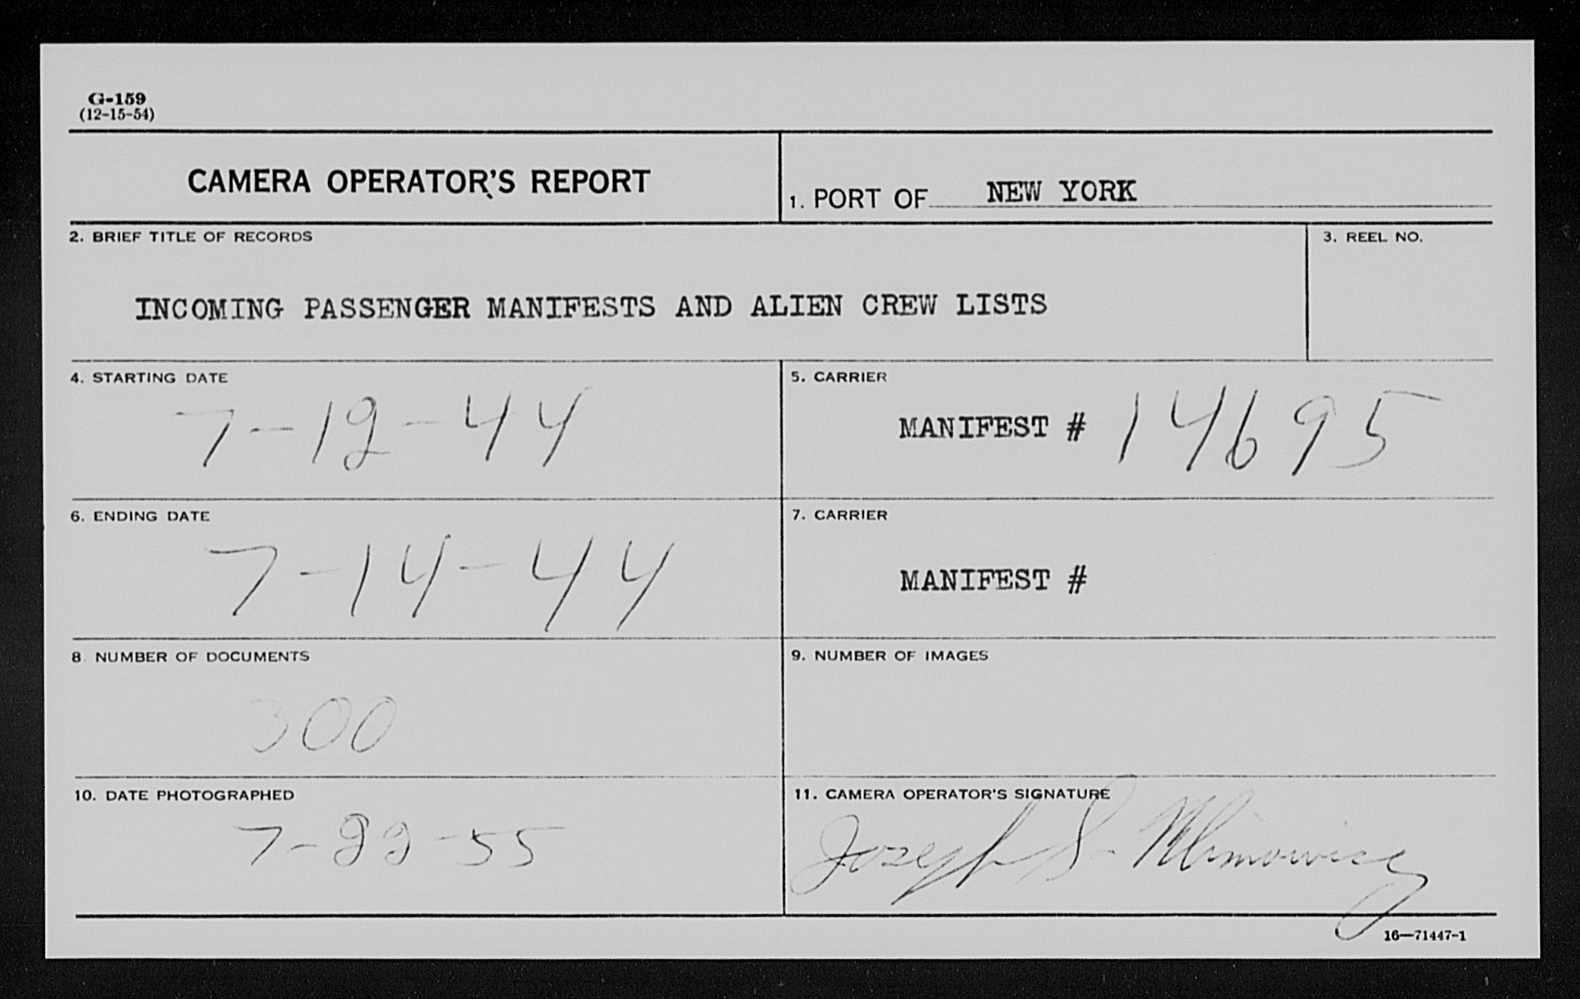 G-159
(12-15-54)
CAMERA OPERATOR'S REPORT
1. PORT OF NEW YORK
2. BRIEF TITLE OF RECORDS
3. REEL NO.
INCOMING PASSENGER MANIFESTS AND ALIEN CREW LISTS
4. STARTING DATE
7-12-44
5. CARRIER
MANIFEST # 14695
6. ENDING DATE
7-14-44
7. CARRIER
MANIFEST #
8 NUMBER OF DOCUMENTS
300
9. NUMBER OF IMAGES
10. DATE PHOTOGRAPHED
7-22-55
11. CAMERA OPERATOR'S SIGNATURE
Joseph S.
16—71447-1